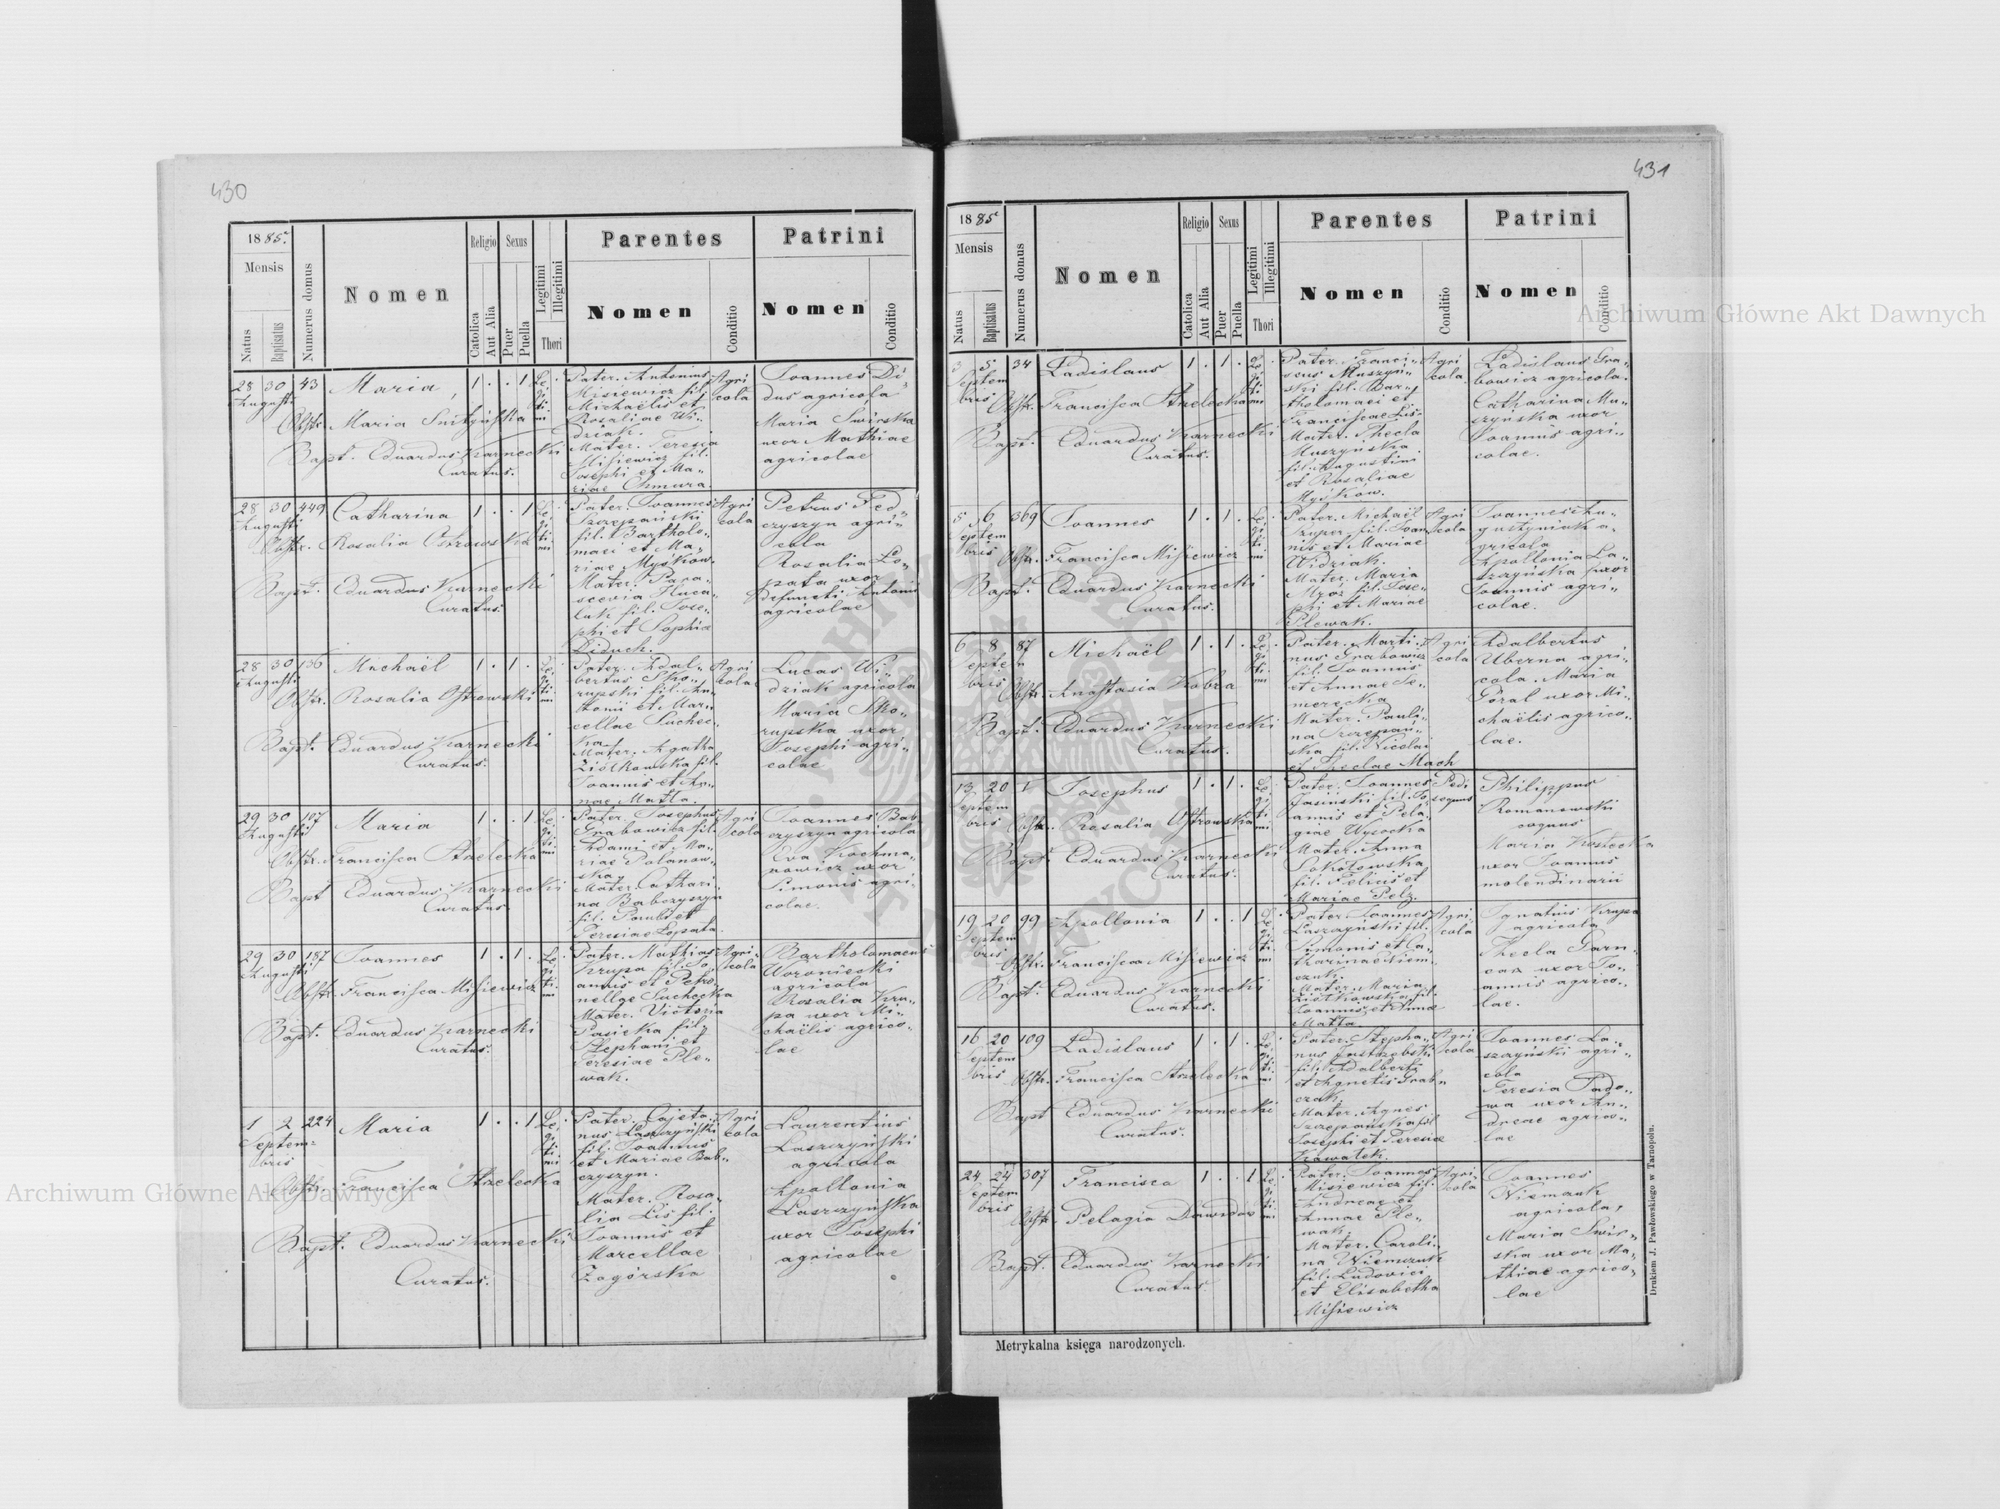 430
1885.
Mensis
Natus
Baptisatus
Numerus domus
Nomen
Religio
Catolica
Aut Alia
Sexus
Puer
Puella
Legitimi
Illegitimi
Thori
Parentes
Nomen
Conditio
Patrini
Nomen
Conditio
28 30 43 Maria 1 . . 1
Augusti
Obstr. Maria
Bapt. Eduardus Karnecki
Curatus.
Pater. Antonius
Misiewicz fil.
Michaëlis et
Rosaliae Wi-
dziak.
Mater. Teresia
Misiewicz fil.
Josephi et Ma-
riae Chmura.
Agri
cola
Joannes Di-
dus agricola
Maria Swirska
uxor Mathiae
agricolae
28 30 449 Catharina 1 . . 1
Augusti
Obstr. Rosalia Ostrowska
Bapt. Eduardus Karnecki
Curatus.
Pater. Joannes
Szczepański
fil. Bartholo-
maei et Ma-
riae Myśkow.
Mater. Para-
scevia Huca-
luk fil. Jose-
phi et Sophia
Diduch.
Agri
cola
Petrus Fed-
czyszyn agri-
cola
Rosalia Lo-
pata uxor
defuncti Antonii
agricolae
28 30 136 Michaël 1 . 1 .
Augusti
Obstr. Rosalia Ostrowski
Bapt. Eduardus Karnecki
Curatus.
Pater. Adal-
bertus Sko-
rupski fil. An-
tonii et Mar-
cellae Suchec-
ka.
Mater. Agatha
Ziółkowska fil.
Joannis et An-
nae Matla.
Agri
cola
Lucas Wi-
dziak agricola
Maria Sko-
rupska uxor
Josephi agri-
colae
29 30 107 Maria 1 . . 1
Augusti
Obstr. Francisca Strzelecka
Bapt Eduardus Karnecki
Curatus.
Pater. Josephus
Grabowicz fil.
Adami et Ma-
riae Polanow-
ska.
Mater. Cathari-
na Babczyszyn
fil. Pauli et
Teresiae Łopata.
Agri
cola
Joannes Bab-
czyszyn agricola
Eva Kochma-
nowicz uxor
Simonis agri-
colae.
29 30 187 Joannes 1 . 1 .
Augusti
Obstr. Francisca Misiewicz
Bapt. Eduardus Karnecki
Curatus.
Pater. Mathias
Krupa fil. Jo-
annis et Petro-
nellae Suchecka
Mater. Victoria
Pasieka fil.
Stephani et
Teresiae Ple-
wak.
Agri-
cola
Bartholomaeus
Woroniecki
agricola
Rosalia Kru-
pa uxor Mi-
chaëlis agrico-
lae
1 2 224 Maria 1 . . 1
Septem-
bris
Obstr. Francisca Strzelecka
Bapt. Eduardus Karnecki
Curatus.
Pater. Cajeta-
nus Łaszczyński
fil. Joannis
et Mariae Bab-
czyszyn.
Mater. Rosa-
lia Lis fil.
Joannis et
Marcellae
Zagórska
Agri
cola
Laurentius
Laszczyński
agricola
Apollonia
Laszczyńska
uxor Josephi
agricolae
431
1885
Mensis
Natus
Baptisatus
Numerus domus
Nomen
Religio
Catolica
Aut Alia
Sexus
Puer
Puella
Legitimi
Illegitimi
Thori
Parentes
Nomen
Conditio
Patrini
Nomen
Conditio
3 5 34 Ladislaus 1 . 1 .
Septem
bris
Obstr. Francisca Strzelecka
Bapt. Eduardus Karnecki
Curatus.
Pater. Franci-
scus Muszyń-
ski fil. Bar-
tholomaei et
Franciscae Lis
Mater. Thecla
Muszyńska
fil. Augustini
et Rosaliae
Myśkow.
Agri
cola
Ladislaus Gra-
bowicz agricola.
Catharina Mu-
szyńska uxor
Joannis agri-
colae.
5 6 369 Joannes 1 . 1 .
Septem
bris
Obstr. Francisca Misiewicz
Bapt. Eduardus Karnecki
Curatus.
Pater. Michaël
Szyper fil. Joan
nis et Mariae
Widziak.
Mater. Maria
Mroz fil. Jose-
phi et Mariae
Plewak.
Agri
cola
Joannes Au-
gustyniak a-
gricola
Apollonia La-
szczyńska uxor
Joannis agri-
colae.
6 8 87 Michaël 1 . 1 .
Septem
bris
Obstr. Anastasia Kobza
Bapt. Eduardus Karnecki
Curatus.
Pater. Marti-
nus Grabowicz
fil. Joannis
et Annae Se-
merecka
Mater. Pauli-
na Szczepań-
ska fil. Nicolai
et Theclae Mach
Agri
cola
Adalbertus
Uberna agri-
cola. Maria
Góral uxor Mi-
chaëlis agrico-
lae.
13 20 1 Josephus 1 . 1 .
Septem
bris
Obstr. Rosalia Ostrowska
Bapt. Eduardus Karnecki
Curatus.
Pater. Joannes
Jasinski fil. Jo
annis et Pela-
giae Wysocka
Mater. Anna
Sokołowska
fil. Felicis et
Mariae Pelz.
Pedi
sequus
Philippus
Romanowski
coquus
Maria Kostecka
uxor Joannis
molendinarii
19 20 99 Apollonia 1 . . 1
Septem
bris
Obstr. Francisca Misiewicz
Bapt. Eduardus Karnecki
Curatus.
Pater Joannes
Laszczyński fil.
Simonis et Ca-
tharinae Niem-
czuk.
Mater. Maria
Ziółkowska fil.
Joannis et Annae
Matla
Agri-
cola
Ignatius Krupa
agricola
Thecla Garn-
carz uxor Jo-
annis agrico-
lae.
16 20 109 Ladislaus 1 . 1 .
Septem
bris
Obstr. Francisca Strzelecka
Bapt Eduardus Karnecki
Curatus.
Pater. Stepha-
nus Jastrzębski
fil. Adalberti
et Agnetis
Mater. Agnes
Szczepańska fil
Josephi et Teresiae
Kawałek.
Agri
cola
Joannes La-
szczyński agri-
cola
Teresia Pado-
wa uxor An-
dreae agrico-
lae
24 24 307 Francisca 1 . . 1
Septem
bris
Obstr. Pelagia Dawidow
Bapt. Eduardus Karnecki
Curatus.
Pater. Joannes
Misiewicz fil.
Andreae et
Annae Ple-
wak.
Mater. Caroli-
na Niemczuk
fil. Ludovici
et Elisabetha
Misiewicz
Agri
cola
Joannes
Niemczuk
agricola,
Maria Swir-
ska uxor Ma-
thiae agrico-
lae
Metrykalna księga narodzonych.
Drukiem J. Pawłowskiego w Tarnopolu.
Archiwum Główne Akt Dawnych
Archiwum Główne Akt Dawnych